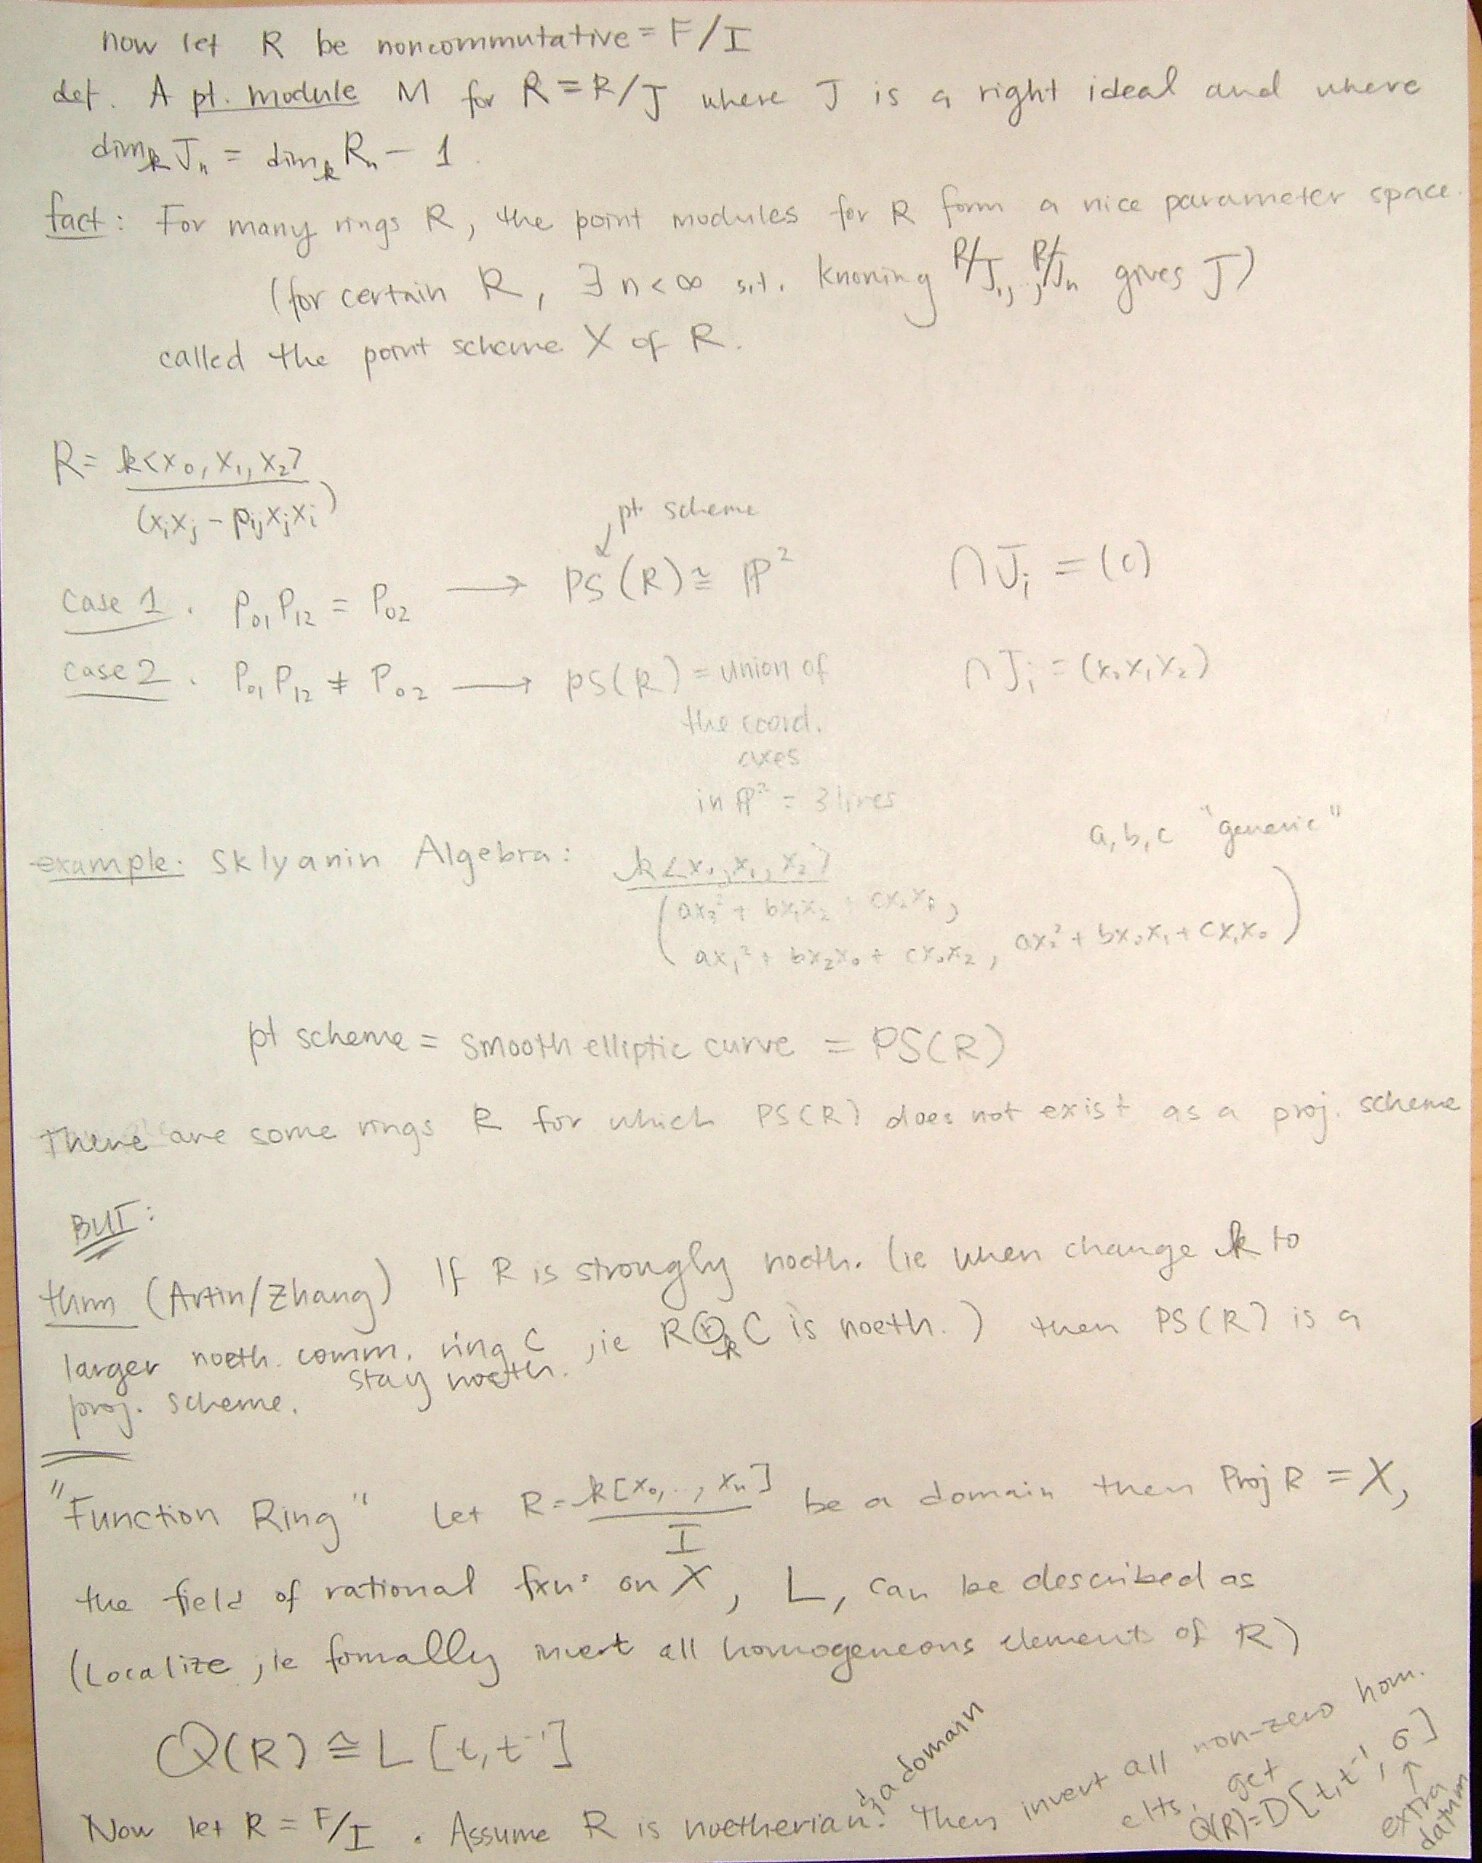 now let R be noncommutative = F/I
def. A pt. module M for R = R/J where J is a right ideal and where
dim_k J_n = dim_k R_n - 1.
fact: For many rings R, the point modules for R form a nice parameter space.
(for certain R, ∃ n<∞ s.t. knowing R/J_1, , R/J_n gives J)
called the point scheme X of R.
R = k<x_0, x_1, x_2>
(x_i x_j - p_ij x_j x_i)
pt scheme
case 1. P_01 P_12 = P_02 → PS(R) ≅ ℙ^2 ∩J_i = (0)
case 2. P_01 P_12 ≠ P_02 → PS(R) = union of ∩J_i = (x_0 x_1 x_2)
the coord.
axes
in ℙ^2 = 3 lines
a, b, c "generic"
example: Sklyanin Algebra: k<x_0, x_1, x_2>
(ax_0^2 + bx_1x_2 + cx_2x_1,
ax_1^2 + bx_2x_0 + cx_0x_2, ax_2^2 + bx_0x_1 + cx_1x_0)
pt scheme = smooth elliptic curve = PS(R)
There are some rings R for which PS(R) does not exist as a proj. scheme
BUT:
thm (Artin/Zhang) If R is strongly noeth. (ie when change k to
larger noeth. comm. ring C, ie R⊗_k C is noeth.) then PS(R) is a
stay noeth.
proj. scheme.
"Function Ring" Let R = k[x_0,..,x_n] / I be a domain then Proj R = X,
the field of rational fxns on X, L, can be described as
(Localize, ie formally invert all homogeneous elements of R)
Q(R) ≅ L[t, t^-1]
Now let R = F/I. Assume R is noetherian & a domain. Then invert all non-zero hom.
elts, get
Q(R) = D[t, t^-1, σ]
↑
extra
datum